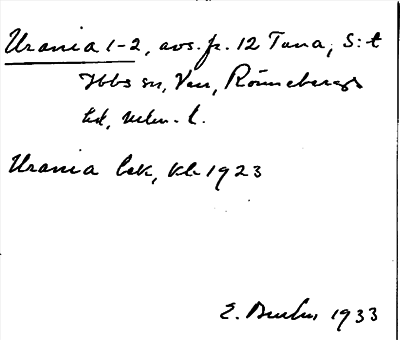 Urania 1-2, avs. fr. 12 Tuna, S:t
Ibbs sn, Ven, Rönnebergs
hd, Mlm. l.
Urania bek, kb 1923
E. 1933